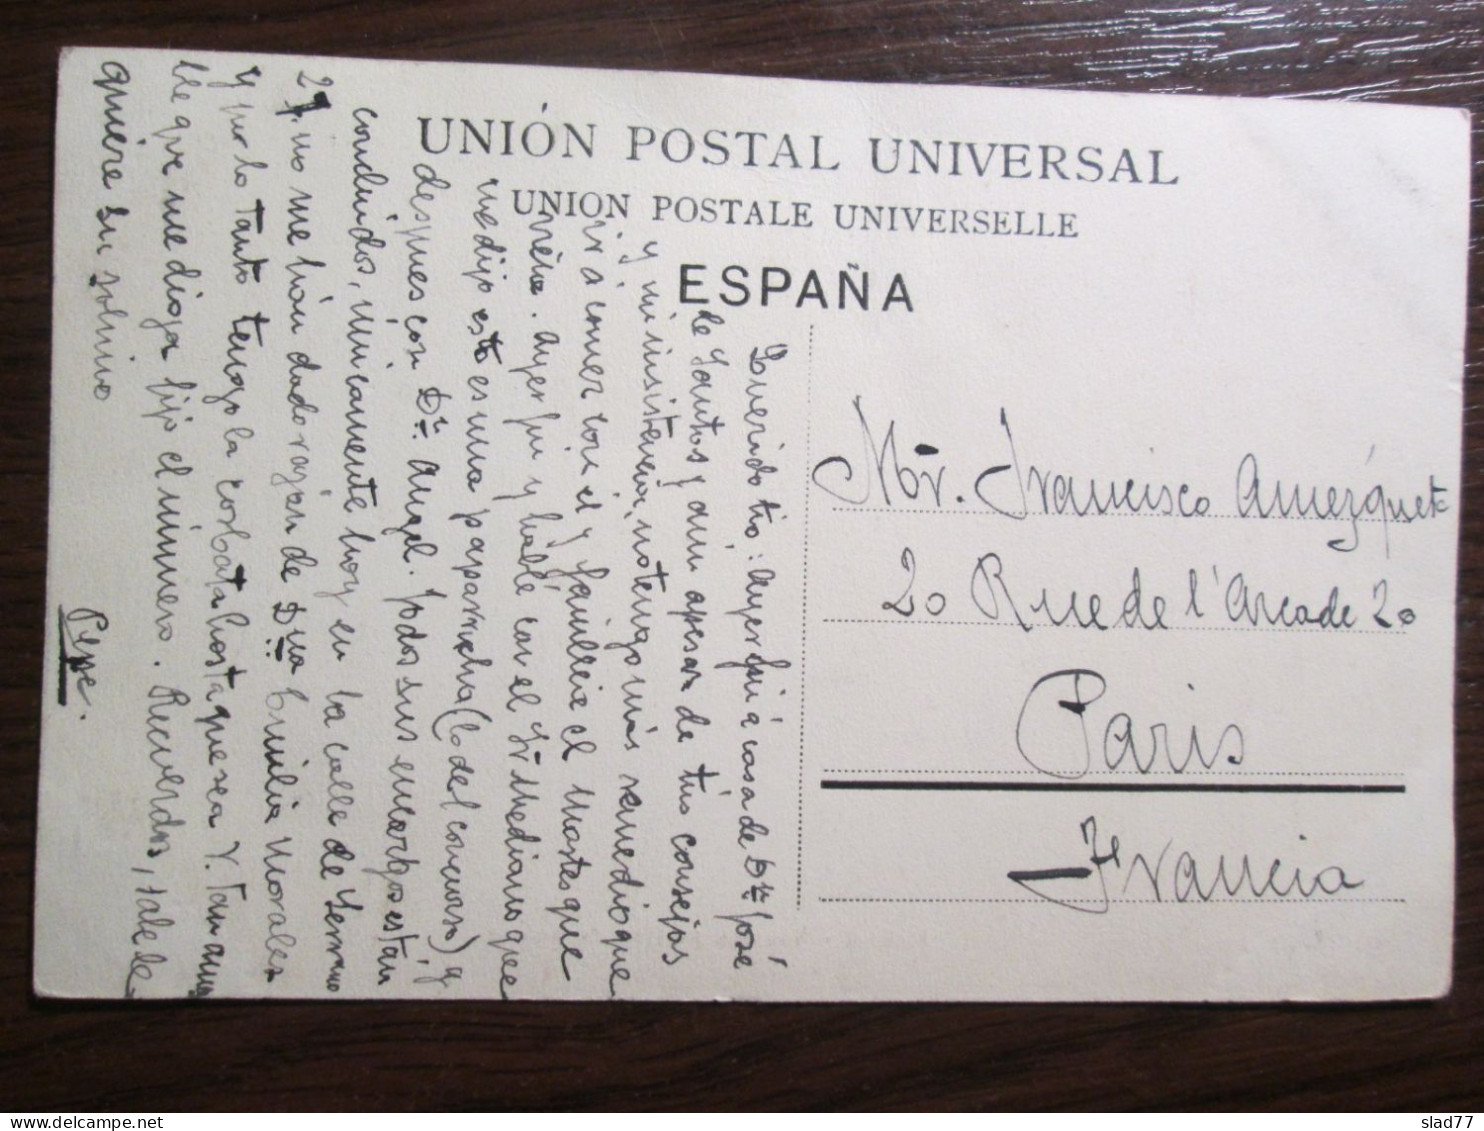 UNIÓN POSTAL UNIVERSAL
UNION POSTALE UNIVERSELLE
ESPAÑA
Querido tio: ayer fui á casa de Dn José
de Santos y aun apesar de tus consejos
y mi insistencia, no tengo más remedio que
ir á comer con él y familia el Martes que
viene. Ayer fui y hablé con el Sr Mediano que
me dijo esto es una paparrucha (lo del concurso) y
despues con Dn. Angel. Todos sus encargos están
concluidos, unicamente hoy en la calle de Serrano
27, no me hán dado razón de Dña Emilia Morales
y por lo tanto tengo la corbata hasta que sea V. tan ama
ble que me diga fijo el número. Recuerdos, tale le
quiere su sobrino
Pepe.
Mr. Francisco Amezqueta
20 Rue de l'Arcade 20
Paris
Francia
slad77
delcampe.net